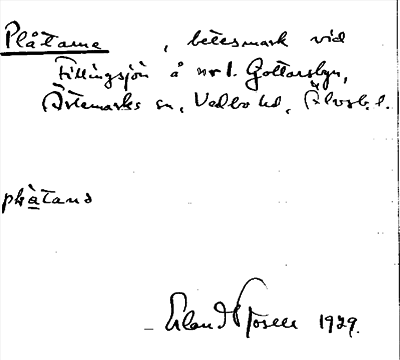 Plåtarna, betesmark vid
Fillingsjön å nr 1. Gottarsbyn,
Ärtemarks sn, Vedbo hd, Älvsb. l.
plàtana
Erland Rosell 1929.